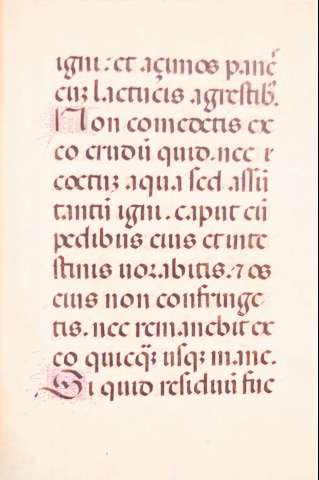 igni: et açimos panẽ
cuʒ lactucis agrestib⁹.
Non comedetis ex
eo crudũ quid. nec ɩ
coctuʒ aqua sed assũ
tantũ igni. caput cũ
pedibus eius et inte
stinis uorabitis. ⁊ os
eius non confringe
tis. nec remanebit ex
eo quicq̃ʒ usqʒ mane.
Si quid residuũ fue